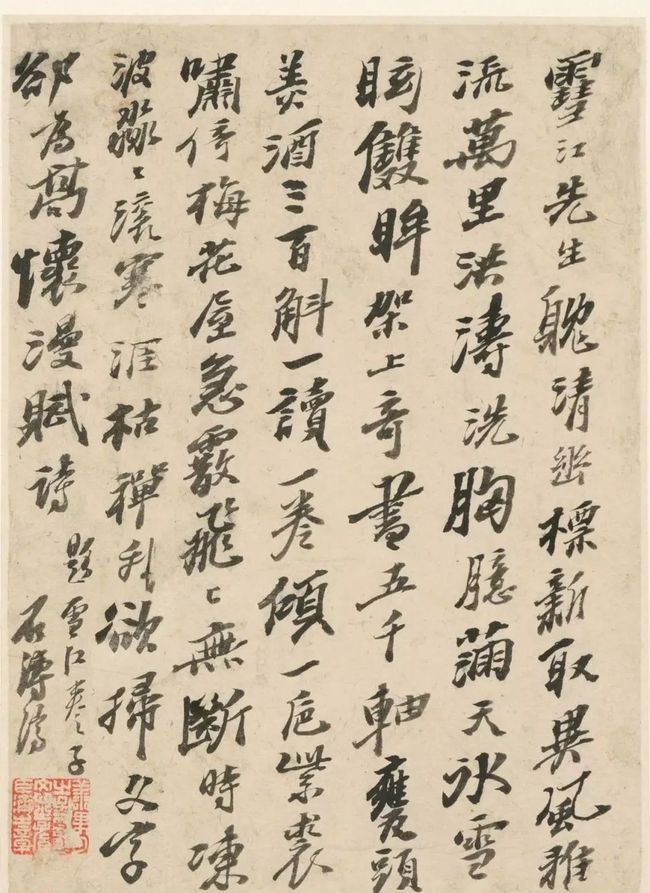 䨮江先生躭清幽標新取異風雅
流萬里洪濤洗胸臆滿天氷雪
眩雙眸架上奇書五千軸甕頭
美酒三百斛一讀一卷傾一卮紫裘
嘯倚梅花屋急霰飛〻無斷時凍
波淼〻滾寒涯枯禪我欲掃文字
卻為高懷漫賦詩
題雪江卷子
石濤濟